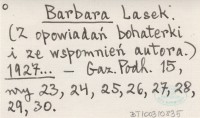 Barbara Lasek.
(Z opowiadań bohaterki
i ze wspomnień autora.)
1927... — Gaz. Podh. 15,
nry 23, 24, 25, 26, 27, 28,
29, 30.